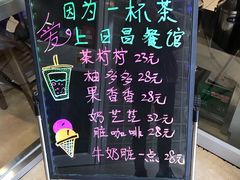 因为一杯茶
爱上日昌餐馆
茉柠柠 23元
柚多多 28元
果香香 28元
奶芝芝 32元
脏咖啡 28元
牛奶脏一点 28元